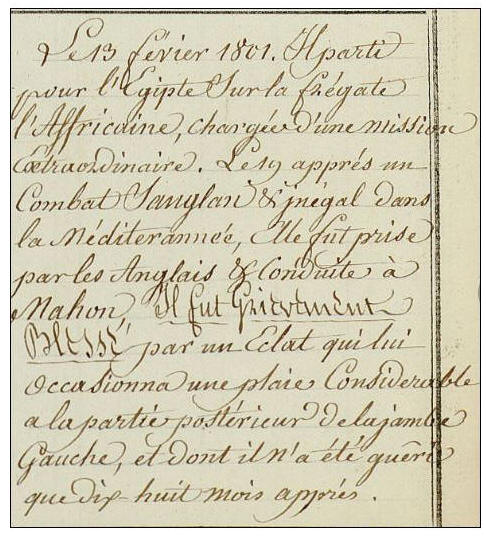 Le 13 févier 1801. Il parti
pour l'Egipte Sur la frégate
l'Affricaine, chargée d'une mission
Extraordinaire. Le 19 apprés un
Combat Sanglant & inégal dans
la Méditerannée, Elle fut prise
par les Anglais & Conduite à
Mahon, Il fut Grievement
Blessé, par un Eclat qui lui
occasionna une plaie Considerable
a la partie postérieur de la jambe
Gauche, et dont il n'a été guêri
que dix huit mois apprés.